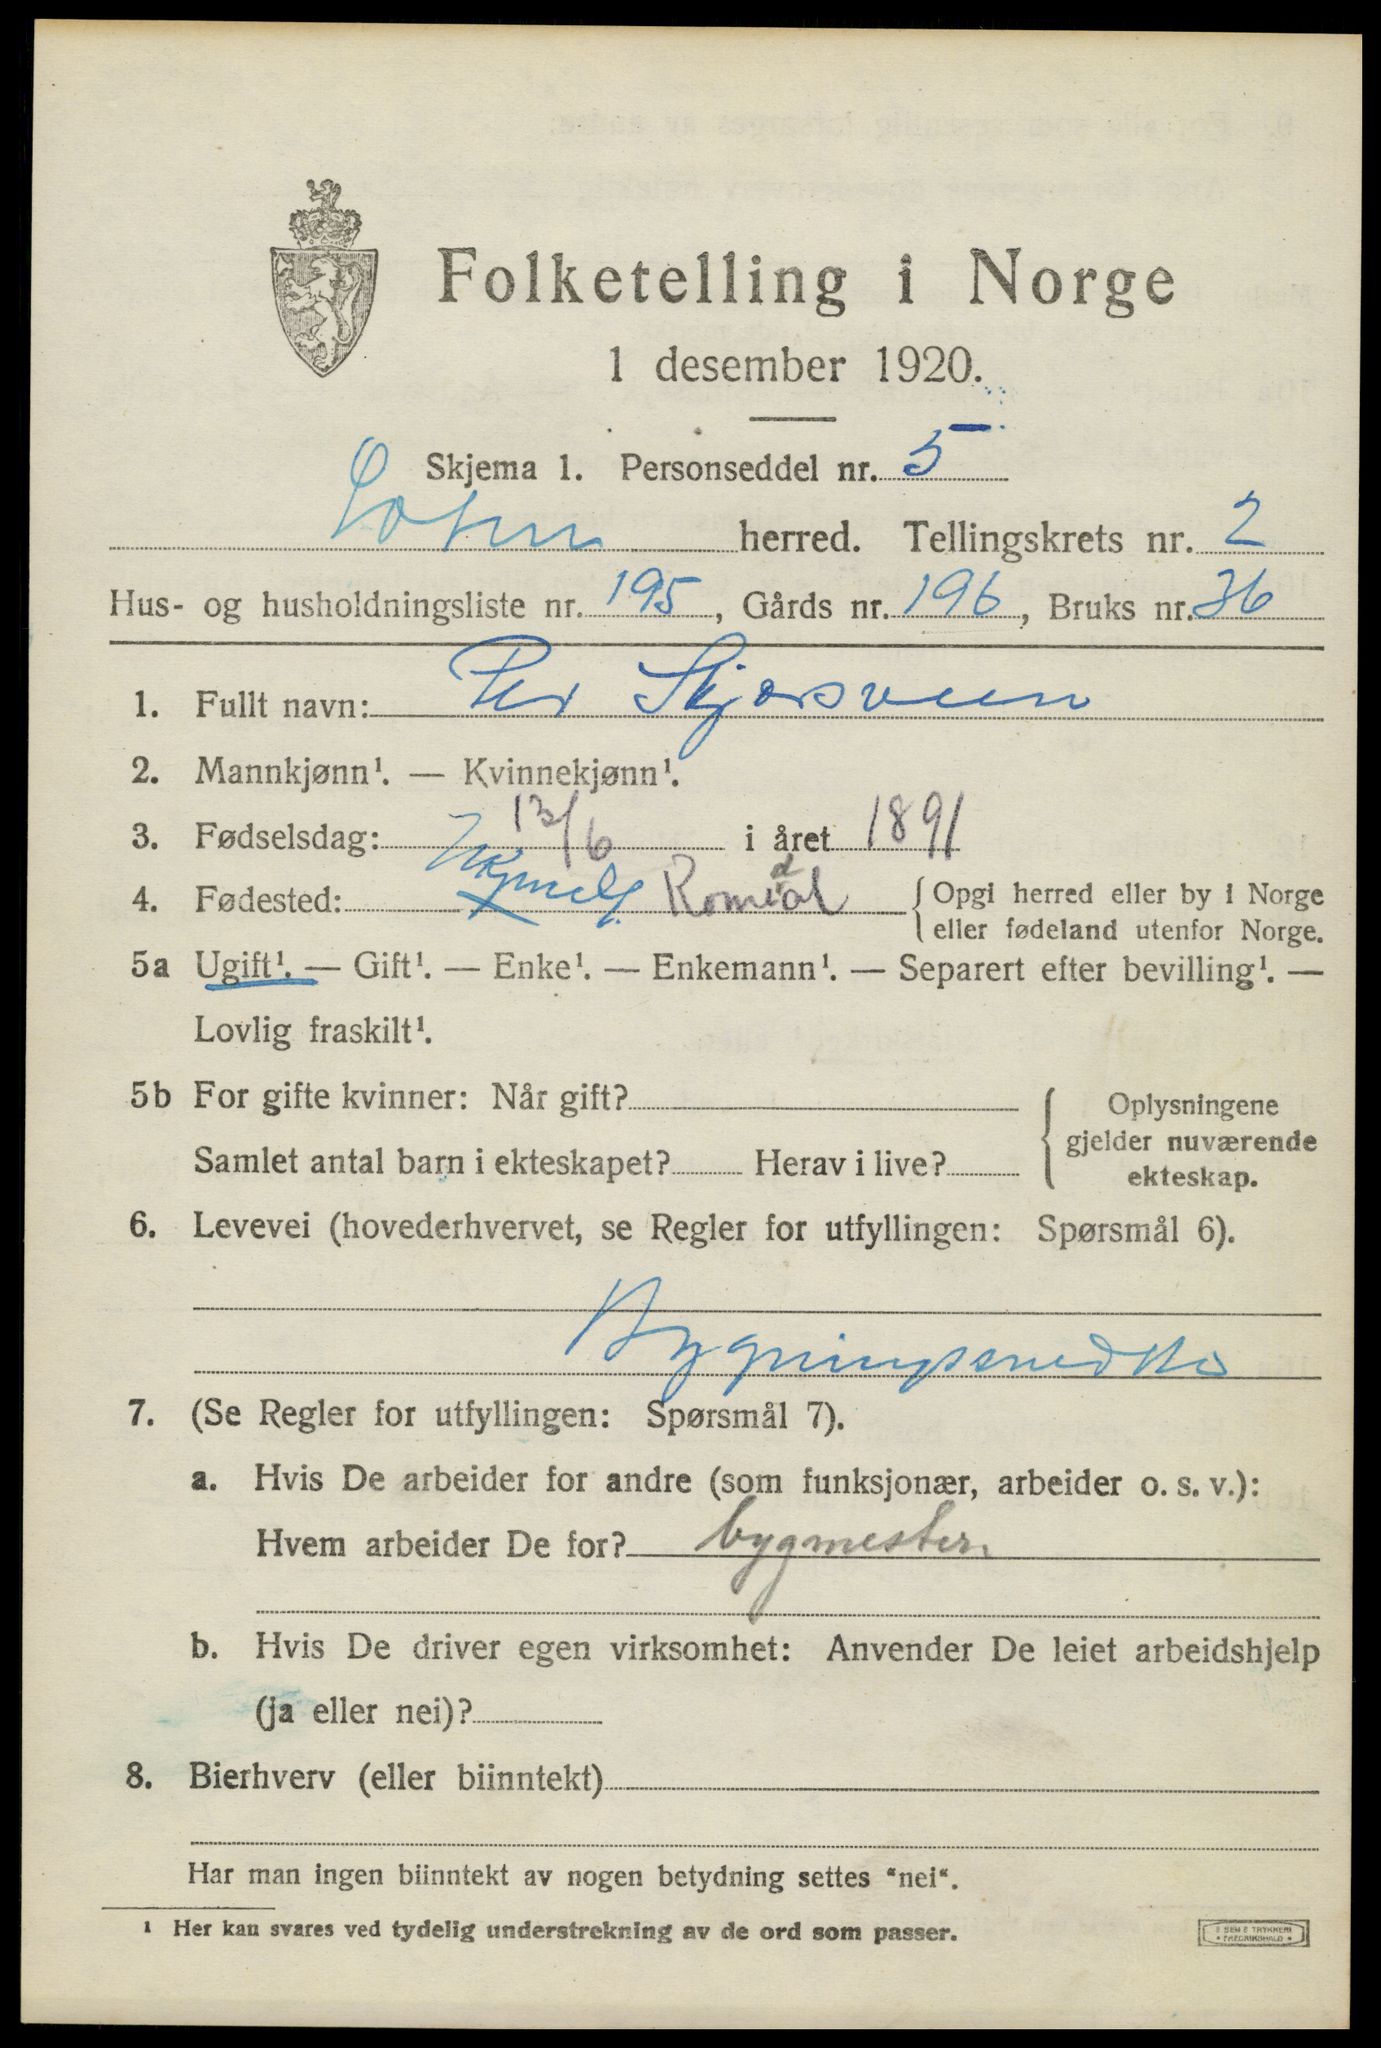 Folketelling i Norge
1 desember 1920.
Skjema 1. Personseddel nr. 5
herred. Tellingskrets nr. 2
Hus- og husholdningsliste nr. 195, Gårds nr. 196, Bruks nr. 36
1. Fullt navn: Per Skjærsveen
2. Mannkjønn¹. — Kvinnekjønn¹.
3. Fødselsdag: 13/6 i året 1891
4. Fødested: Romedal { Opgi herred eller by i Norge
eller fødeland utenfor Norge.
5a Ugift¹. — Gift¹. — Enke¹. — Enkemann¹. — Separert efter bevilling¹. —
Lovlig fraskilt¹.
5b For gifte kvinner: Når gift?
Samlet antal barn i ekteskapet? Herav i live?
Oplysningene
gjelder nuværende
ekteskap.
6. Levevei (hovederhvervet, se Regler for utfyllingen: Spørsmål 6).
7. (Se Regler for utfyllingen: Spørsmål 7).
a. Hvis De arbeider for andre (som funksjonær, arbeider o. s. v.):
Hvem arbeider De for? bygmester
b. Hvis De driver egen virksomhet: Anvender De leiet arbeidshjelp
(ja eller nei)?
8. Bierhverv (eller biinntekt)
Har man ingen biinntekt av nogen betydning settes "nei".
¹ Her kan svares ved tydelig understrekning av de ord som passer.